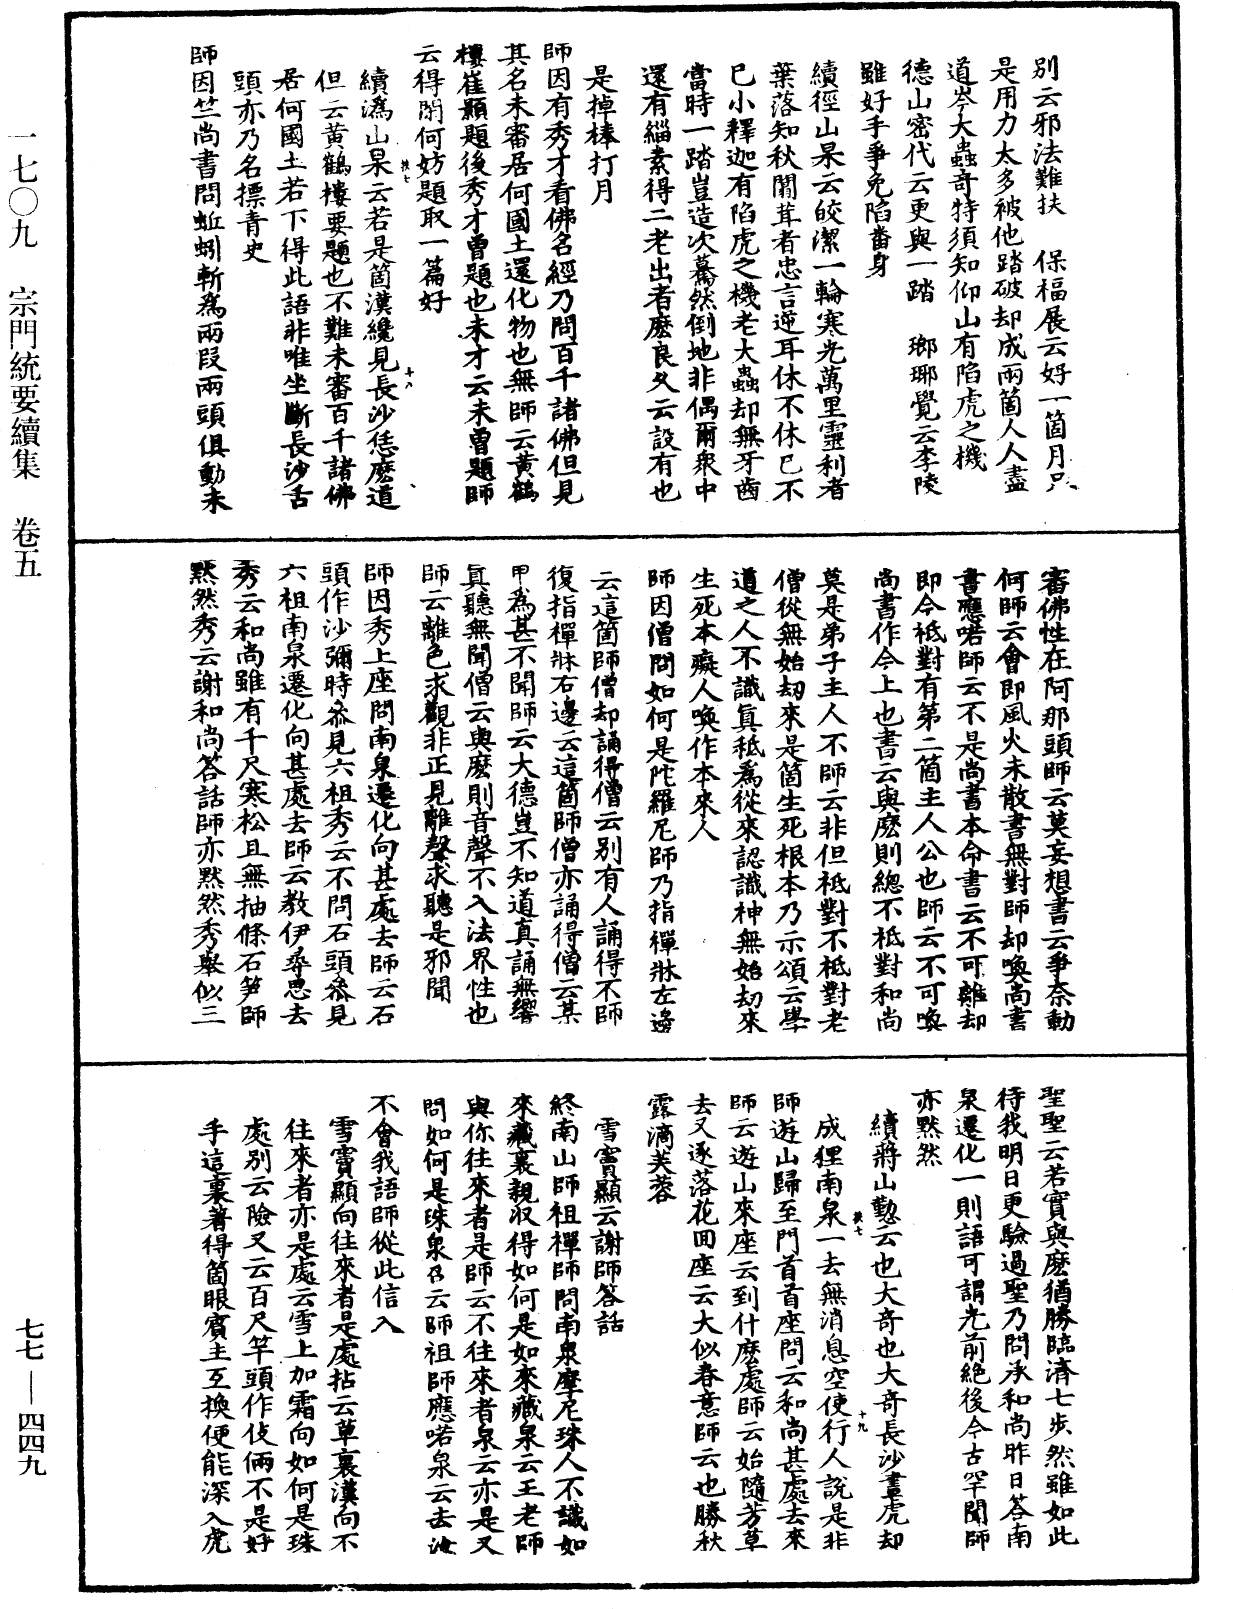 別云邪法難扶　保福展云好一箇月只
是用力太多被他踏破却成兩箇人人盡
道岑大蟲奇特須知仰山有陷虎之機
德山密代云更與一踏　瑯瑘覺云李陵
雖好手爭免陷番身
續徑山杲云皎潔一輪寒光萬里靈利者
葉落知秋闒茸者忠言逆耳休不休已不
已小釋迦有陷虎之機老大蟲却無牙齒
當時一踏豈造次驀然倒地非偶爾衆中
還有緇素得二老出者麽良久云設有也
是掉棒打月
師因有秀才看佛名經乃問百千諸佛但見
其名未審居何國土還化物也無師云黃鶴
樓崔顥題後秀才曾題也未才云未曾題師
云得閑何妨題取一篇好
續溈山杲云若是箇漢纔見長沙恁麽道
但云黃鶴樓要題也不難未審百千諸佛
居何國土若下得此語非唯坐斷長沙舌
頭亦乃名摽青史
師因竺尚書問蚯蚓斬爲兩段兩頭俱動未
審佛性在阿那頭師云莫妄想書云爭奈動
何師云會即風火未散書無對師却喚尚書
書應喏師云不是尚書本命書云不可離却
即今祗對有第二箇主人公也師云不可喚
尚書作今上也書云與麽則總不祗對和尚
莫是弟子主人不師云非但祗對不祗對老
僧從無始劫來是箇生死根本乃示頌云學
道之人不識眞秪爲從來認識神無始劫來
生死本癡人喚作本來人
師因僧問如何是陀羅尼師乃指禪牀左邊
云這箇師僧却誦得僧云別有人誦得不師
復指禪牀右邊云這箇師僧亦誦得僧云某
甲爲甚不聞師云大德豈不知道真誦無響
真聽無聞僧云與麽則音聲不入法界性也
師云離色求觀非正見離聲求聽是邪聞
師因秀上座問南泉遷化向甚處去師云石
頭作沙彌時叅見六祖秀云不問石頭叅見
六祖南泉遷化向甚處去師云教伊尋思去
秀云和尚雖有千尺寒松且無抽條石笋師
默然秀云謝和尚答話師亦默然秀舉似三
聖聖云若實與麽猶勝臨濟七步然雖如此
待我明日更驗過聖乃問承和尚昨日答南
泉遷化一則語可謂光前絕後今古罕聞師
亦默然
續蔣山懃云也大奇也大奇長沙畫虎却
成狸南泉一去無消息空使行人說是非
師遊山歸至門首首座問云和尚甚處去來
師云遊山來座云到什麽處師云始隨芳草
去又逐落花回座云大似春意師云也勝秋
露滴芙蓉
雪竇顯云謝師答話
終南山師祖禪師問南泉摩尼珠人不識如
來藏裏親收得如何是如來藏泉云王老師
與你往來者是師云不往來者泉云亦是又
問如何是珠泉召云師祖師應喏泉云去汝
不會我語師從此信入
雪竇顯向往來者是處拈云草裏漢向不
往來者亦是處云雪上加霜向如何是珠
處別云險又云百尺竿頭作伎倆不是好
手這裏著得箇眼賓主互換便能深入虎
一七〇九　宗門統要續集　卷五
七七—四四九
扶七
十八
扶七
十九